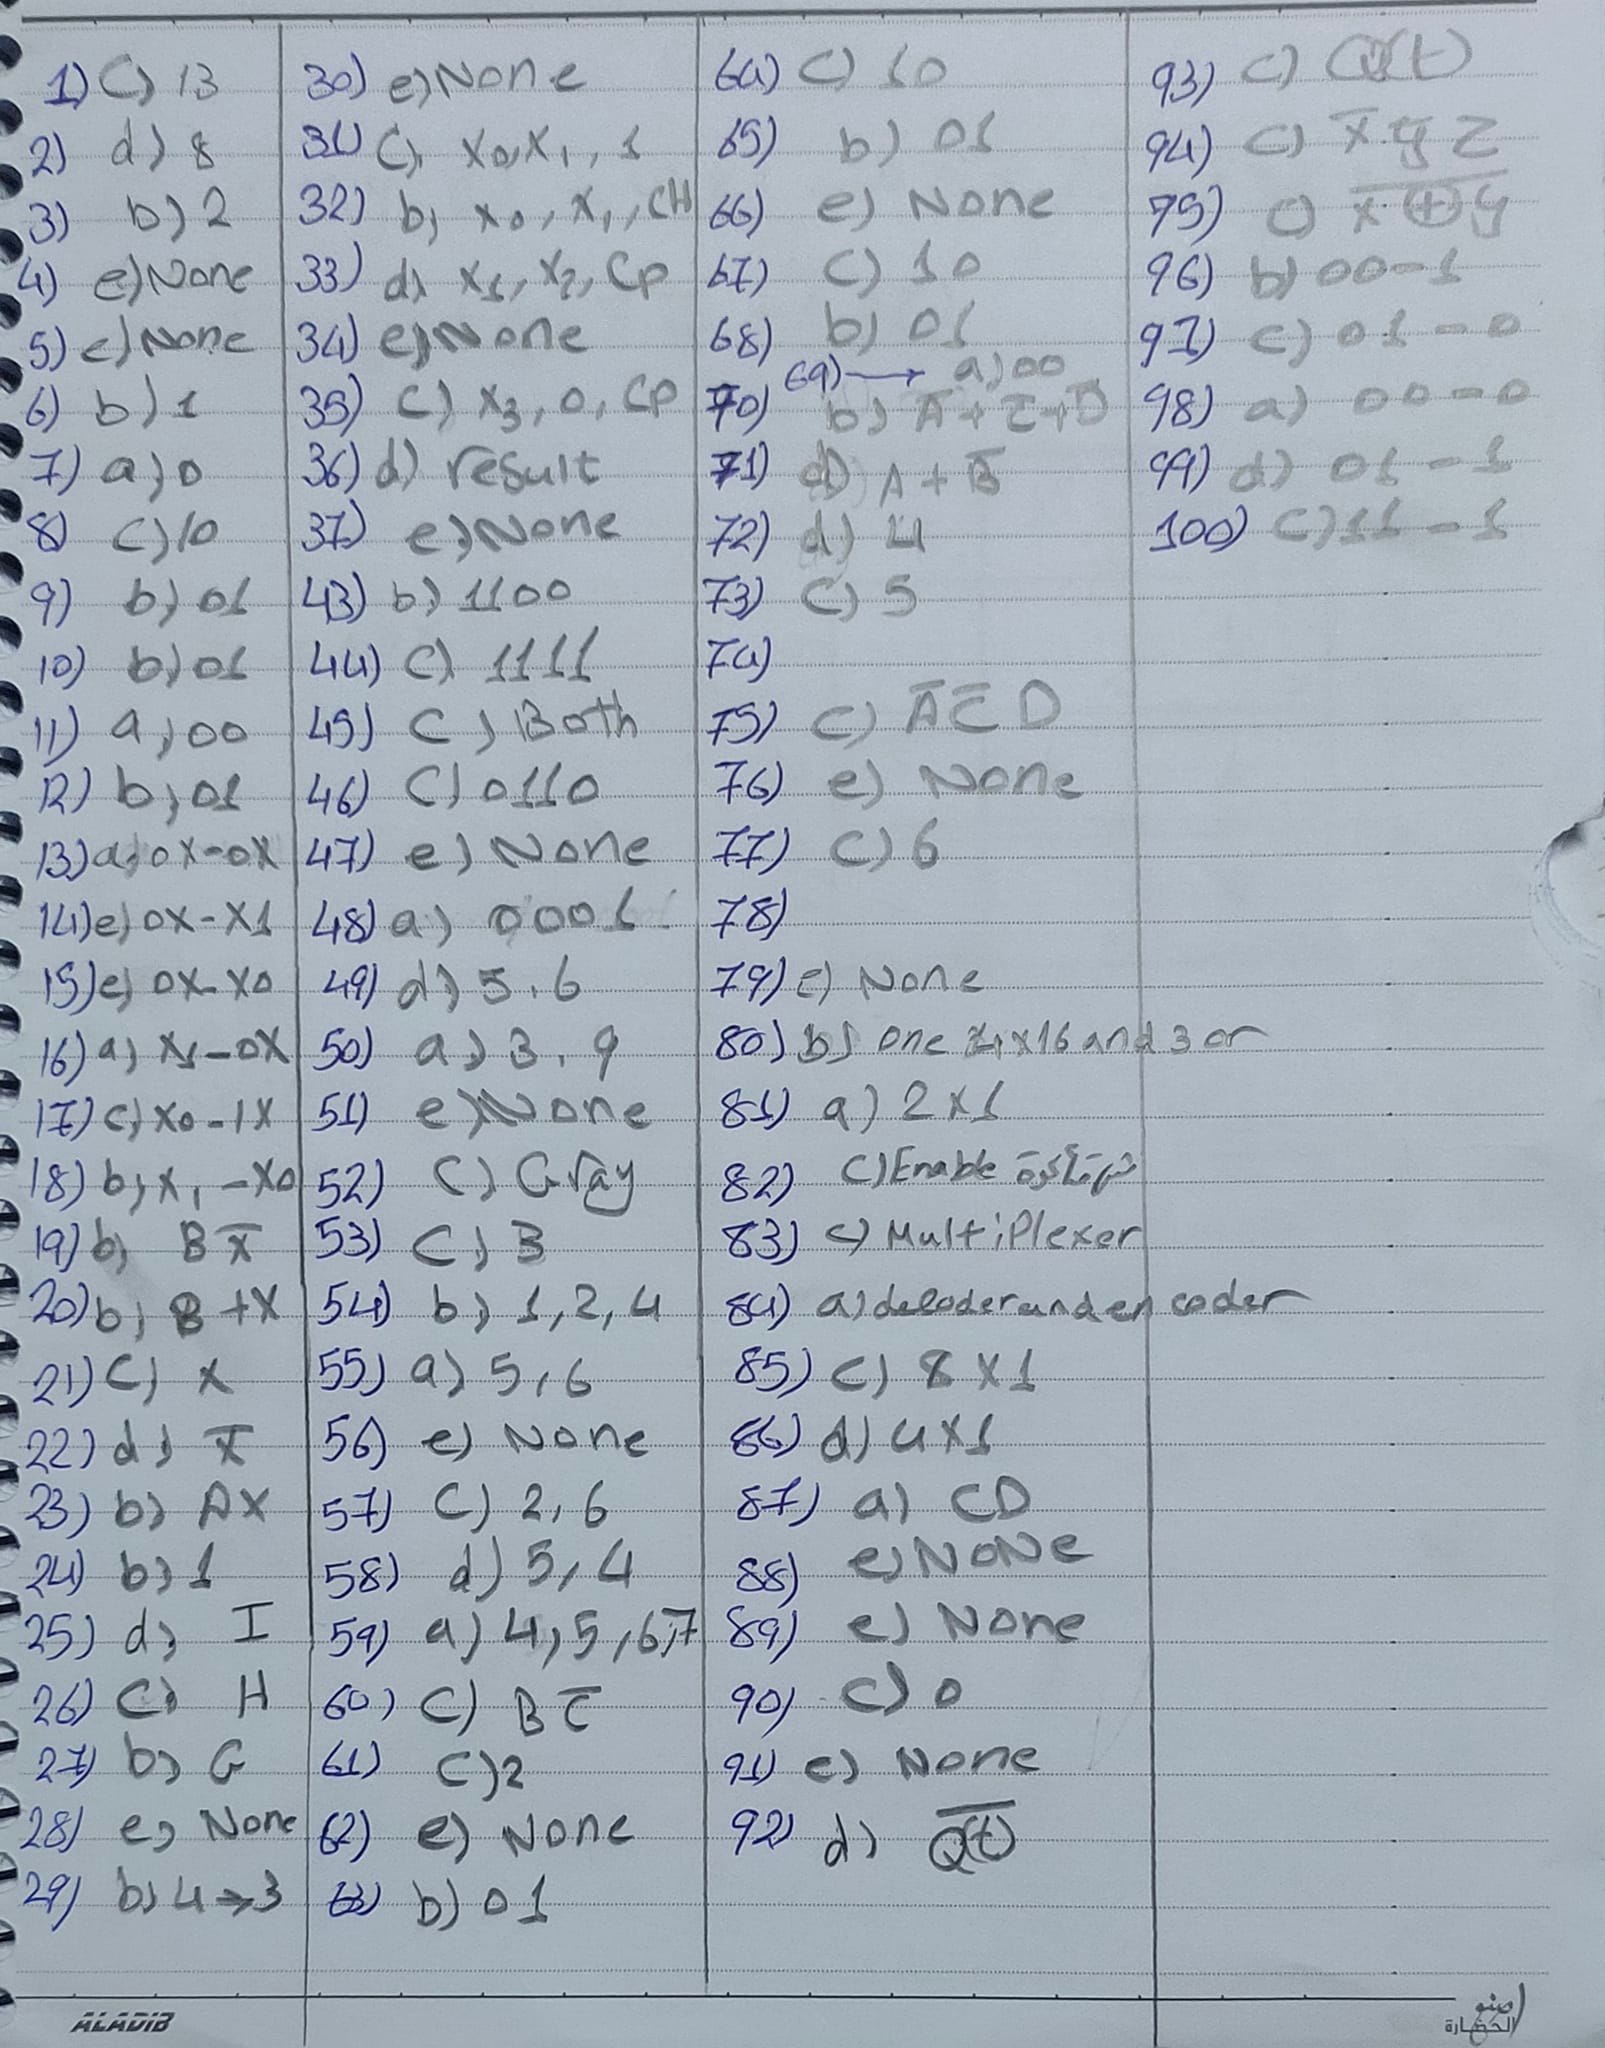 1) c) 13
2) d) 8
3) b) 2
4) e) None
5) e) None
6) b) 1
7) a) 0
8) c) 10
9) b) 01
10) b) 01
11) a) 00
12) b) 01
13) a) 0X-0X
14) e) 0X-X1
15) e) 0X-X0
16) a) X1-0X
17) c) X0-1X
18) b) X1-X0
19) b) BX̅
20) b) B+X
21) c) X
22) d) X̅
23) b) AX
24) b) 1
25) d) I
26) c) H
27) b) G
28) e) None
29) b) 4→3
30) e) None
31) c) X0, X1, 1
32) b) X0, X1, CH
33) d) X1, X2, Cp
34) e) None
35) c) X3, 0, Cp
36) d) result
37) e) None
43) b) 1100
44) c) 1111
45) c) Both
46) c) 0110
47) e) None
48) a) 0001
49) d) 5, 6
50) a) 3, 9
51) e) None
52) c) Gray
53) c) 3
54) b) 1, 2, 4
55) a) 5, 6
56) e) None
57) c) 2, 6
58) d) 5, 4
59) a) 4, 5, 6, 7
60) c) BC̅
61) c) 2
62) e) None
63) b) 01
64) c) 10
65) b) 01
66) e) None
67) c) 10
68) b) 01
69) → a) 00
70) b) A̅+C̅+D̅
71) d) A+B̅
72) d) 4
73) c) 5
74)
75) c) A̅C̅D
76) e) None
77) c) 6
78)
79) e) None
80) b) one 4x16 and 3 or
81) a) 2x1
82) c) Enable
83) c) Multiplexer
84) a) decoder and encoder
85) c) 8x1
86) d) 4x1
87) a) CD
88) e) NoNe
89) e) None
90) c) 0
91) e) None
92) d) Q̅(̅t̅)̅
93) c) Q(t)
94) c) x̅y̅z
95) c) x̅⊕̅y̅
96) b) 00-1
97) c) 01-0
98) a) 00-0
99) d) 01-1
100) c) 11-1
ALADIB
الحضارة